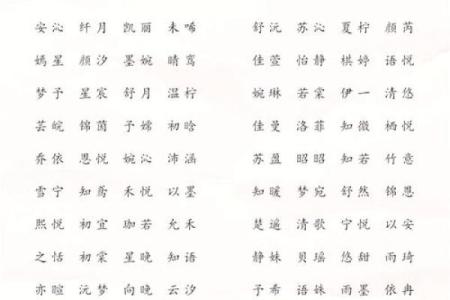 安沁 纤月 凯丽 未唏 舒沅 苏沁 夏柠 颜芮
嫣星 颜汐 墨婉 晴鸾 佳萱 怡静 棋婷 语悦
梦予 星宸 舒月 温柠 婉琳 若棠 伊一 清悠
芸皖 锦茵 子嫣 初晗 佳曼 洛菲 知微 栖悦
乔依 恩悦 婉沁 沛涵 苏盈 昭昭 知若 竹意
雪宁 知鸢 禾悦 以墨 知暖 梦宛 舒然 锦恩
熙悦 初宜 珈若 允禾 楚遥 清歌 宁悦 以安
之恬 初棠 星晚 知语 静姝 贝瑶 悠甜 雨琦
亦暄 沅梦 向晚 云汐 子希 语姝 雨墨 依冉